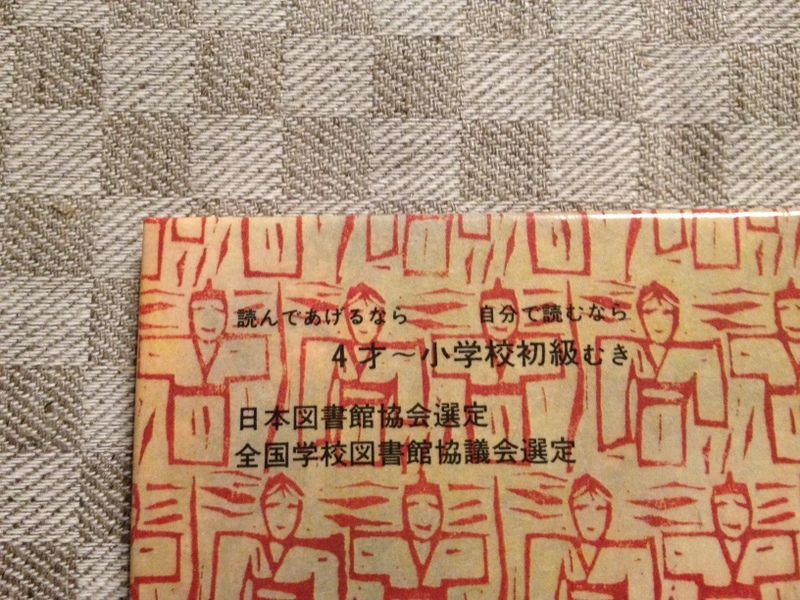 読んであげるなら 自分で読むなら
4才～小学校初級むき
日本図書館協会選定
全国学校図書館協議会選定